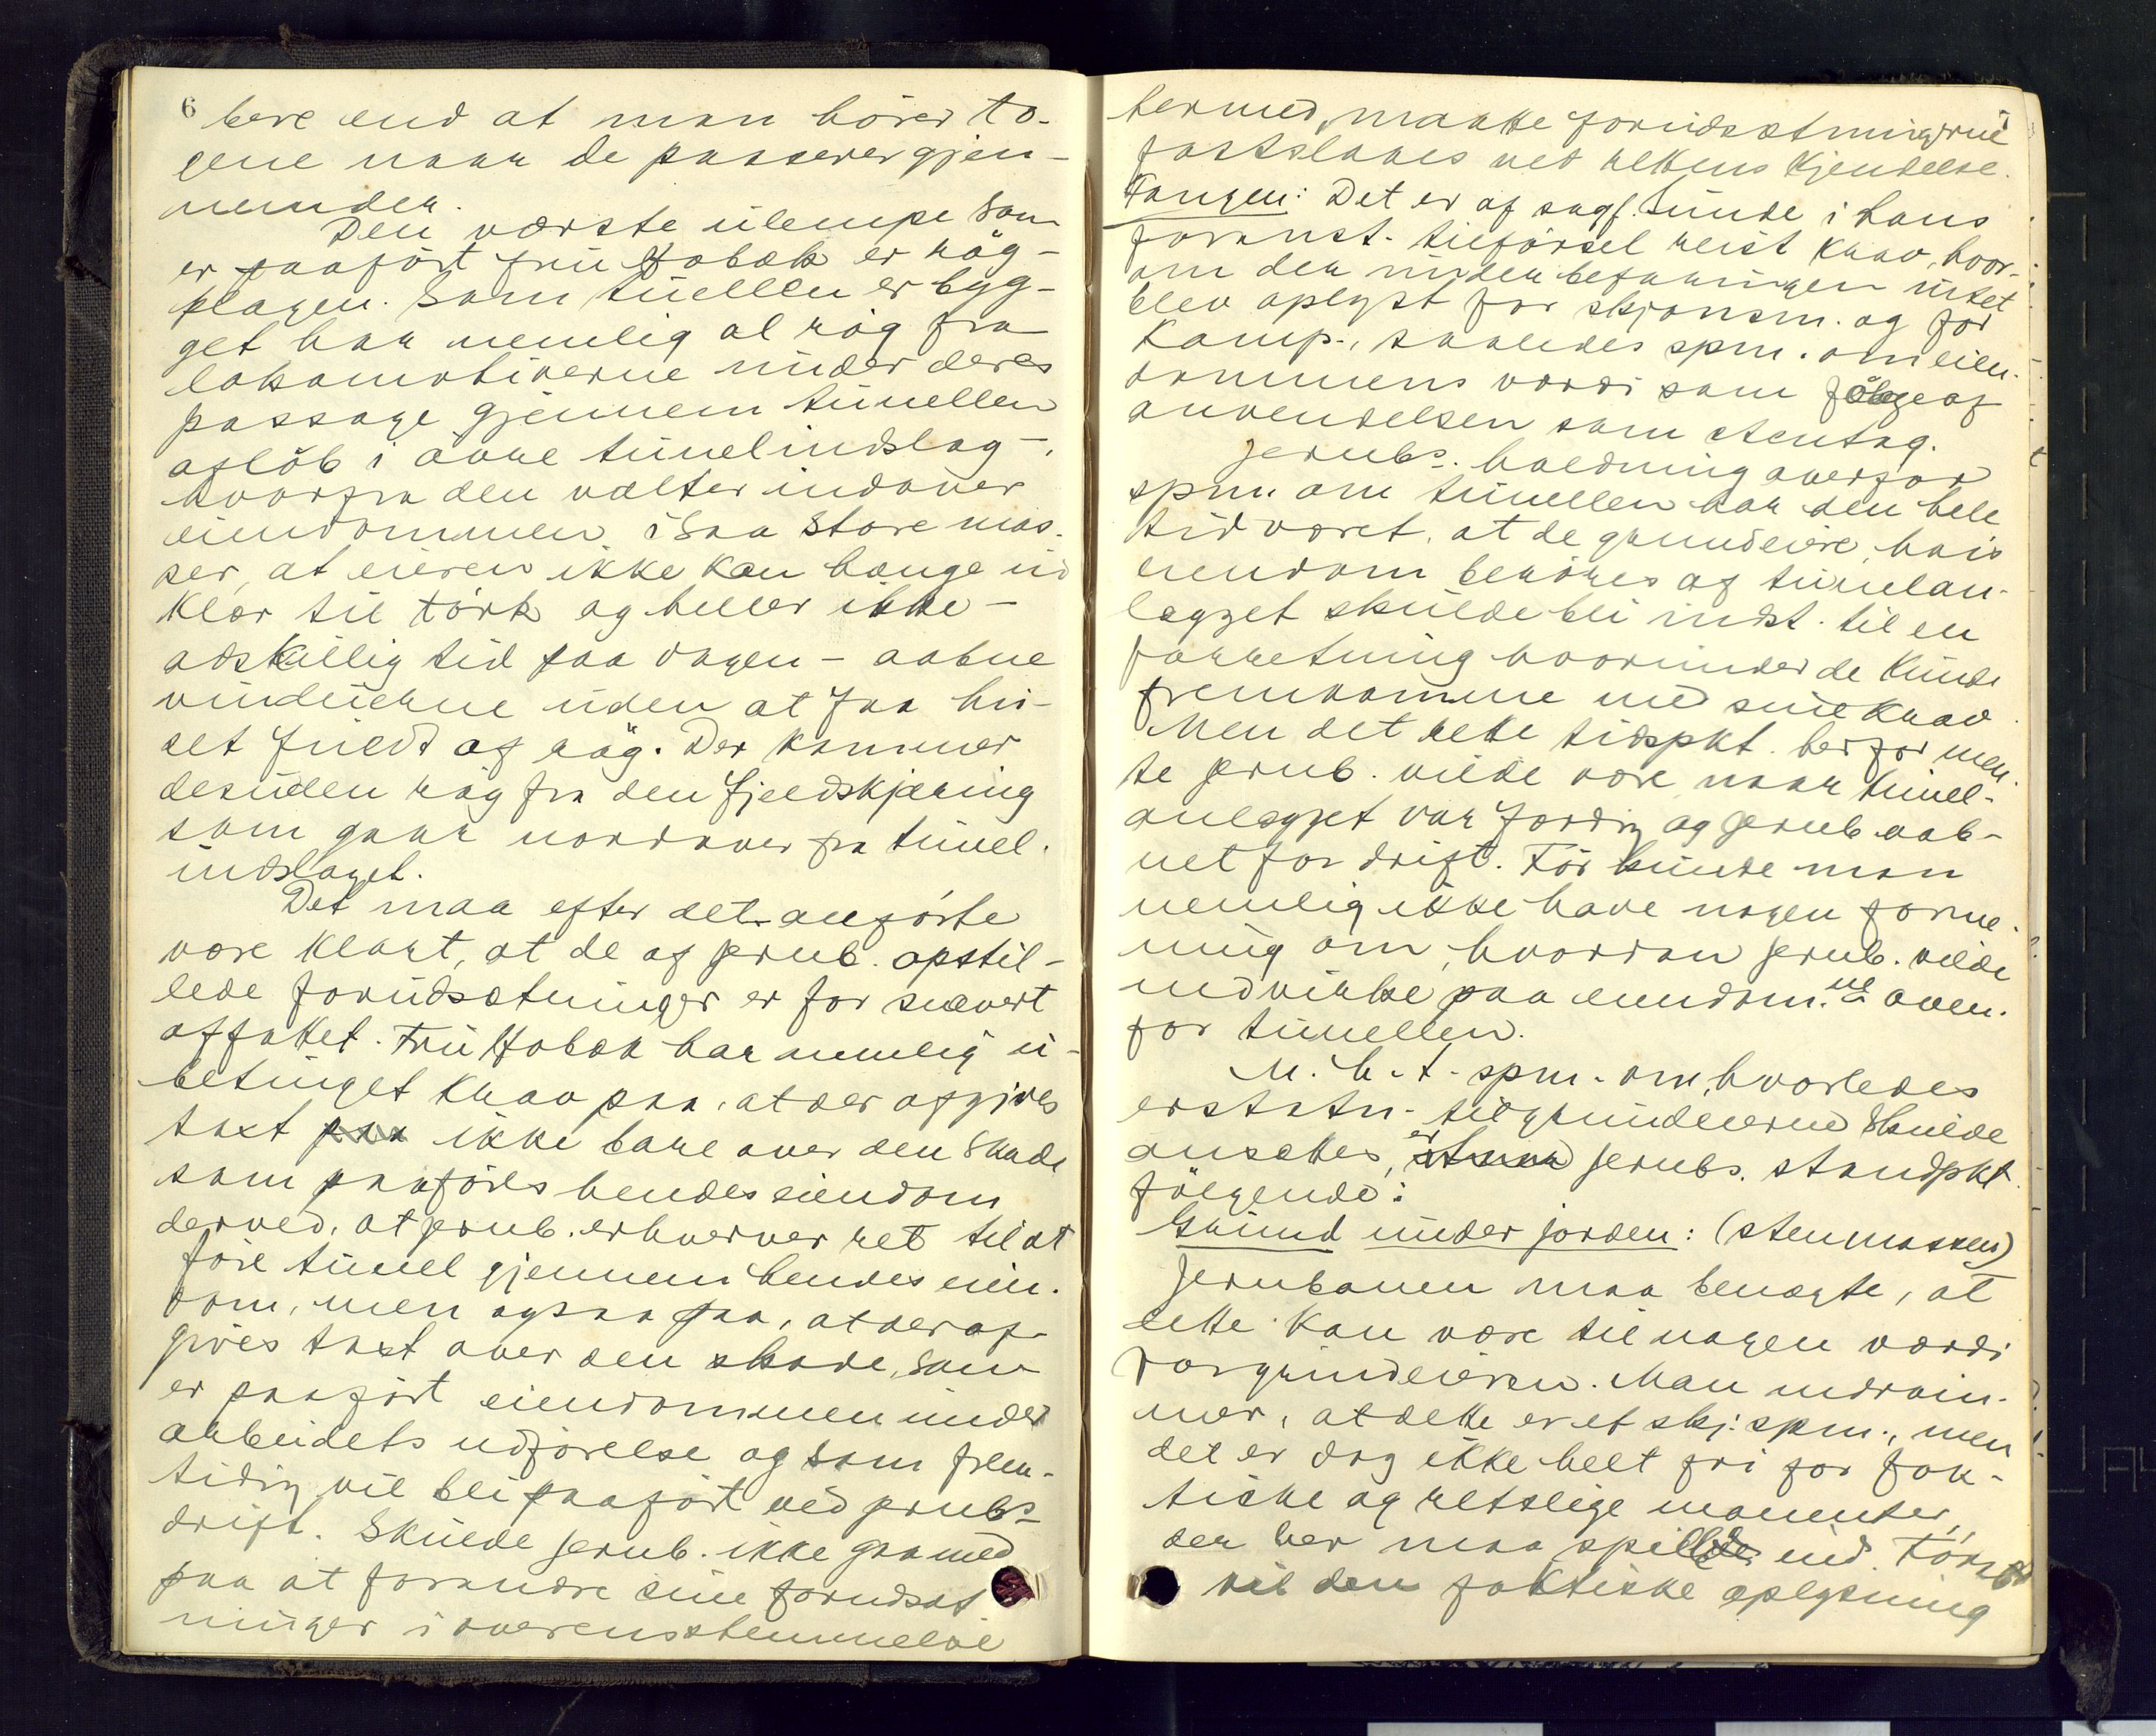 6 bere end at man hörer to-
gene naar de passerer gjen-
nem den.
Den værste ulempe som
er paafört fru Habæk er rög-
plagen. Som tunellen er byg-
get har nemlig al rög fra
lokomotiverne under deres
passage gjennem tunellen
aflöb i övre tunelindslag,
hvorfra den vælter indover
eiendommen i saa store mas-
ser, at eieren ikke kan hænge ud
klær til törk og heller ikke -
adskillig tid paa dagen - aabne
vinduerne uden at faa hu-
set fuldt af rög. Der kommer
desuden rög fra den fjeldskjæring
som gaar nordover fra tunel-
indslaget.
Det maa efter det anförte
være klart, at de af jernb. opstil-
lede forudsætninger er for snævert
affattet. Fru Habæk har nemlig u-
betinget krav paa, at der afgives
taxt paa ikke bare over den skade
som paaföres hendes eiendom
derved, at jernb. erhverver ret til at
före tunel gjennem hendes eien-
dom, men ogsaa paa, at der af-
gives taxt over den skade, som
er paafört eiendommen under
arbeidets udförelse og som frem-
tidig vil bli paafört ved jernbs
drift. Skulde jernb. ikke gaa med
paa at forandre sine forudsæt
ninger i overensstemmelse
hermed, maatte forudsætningerne
fastslaaes ved rettens kjendelse.
Tangen: Det er af sagf. Sunde i hans
foranst. tilförsel reist krav, hvor-
om der under befaringen intet
blev oplyst for skjönsm. og for
Komp., saaledes spm. om eien-
dommens værdi som fölge af
anvendelsen som stentag.
Jernbs. holdning overfor
spm. om tunellen har den hele
tid været, at de grundeiere, hvis
eiendom beröres af tunelan-
lægget skulde bli indst. til en
forretning hvorunder de kunde
fremkomme med sine krav.
Men det rette tidspkt. herfor men-
te jernb. vilde være, naar tunel-
anlægget var færdig og jernb. aab-
net for drift. För kunde man
nemlig ikke have nogen forme-
ning om, hvordan jernb. vilde
indvirke paa eiendom.ne oven-
for tunellen.
M.h.t. spm. om, hvorledes
erstatn. til grundeierne skulde
ansættes, er jernbs. standpkt.
fölgende:
Grund under jorden: (stenmassen)
Jernbanen maa benægte, at
dette kan være til nogen værdi
for grundeieren. Man indröm-
mer, at dette er et skj. spm., men
det er dog ikke helt fri for fak-
tiske og retslige momenter,
der her maa spille ind. Först
vil den faktiske oplysning